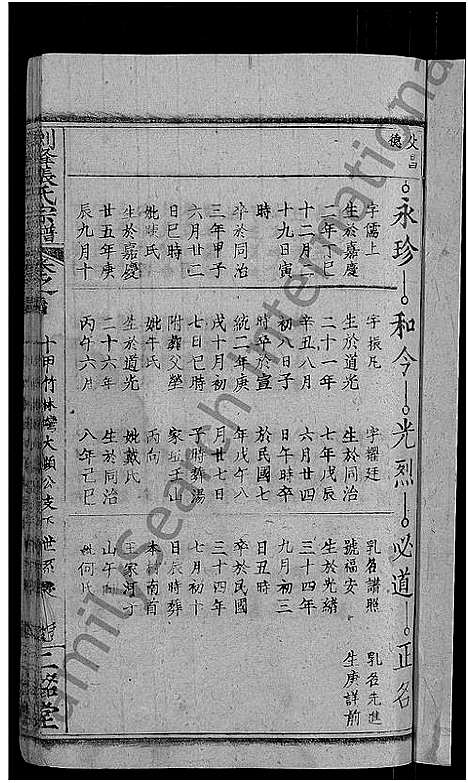 文昌
德
永珍
和令
光烈
必道
正名
字儒上
生於嘉慶
二年丁巳
十二月二
十九日寅
時
卒於同治
三年甲子
六月廿二
日巳時
姚陳氏
生於嘉慶
廿五年庚
辰九月十
字振凡
生於道光
二十一年
辛丑八月
初八日子
時卒於宣
統二年庚
戌十月初
七日巳時
附葬父塋
姚午氏
生於道光
二十六年
丙午六月
字耀廷
生於同治
七年戊辰
六月廿四
日午時卒
於民國七
年戊午八
月廿七日
子時葬湯
家坵壬山
丙向
姚戴氏
生於同治
八年己巳
乳名譜照
號福安
生於光緒
三十四年
九月初三
日丑時
卒於民國
三十四年
七月初十
日辰時葬
本村南首
王家河丁
山午向
姚何氏
乳名先進
生庚詳前
張氏宗譜
卷之首
十甲竹林灣大顯公支下世系
二銘堂
FamilySearch International